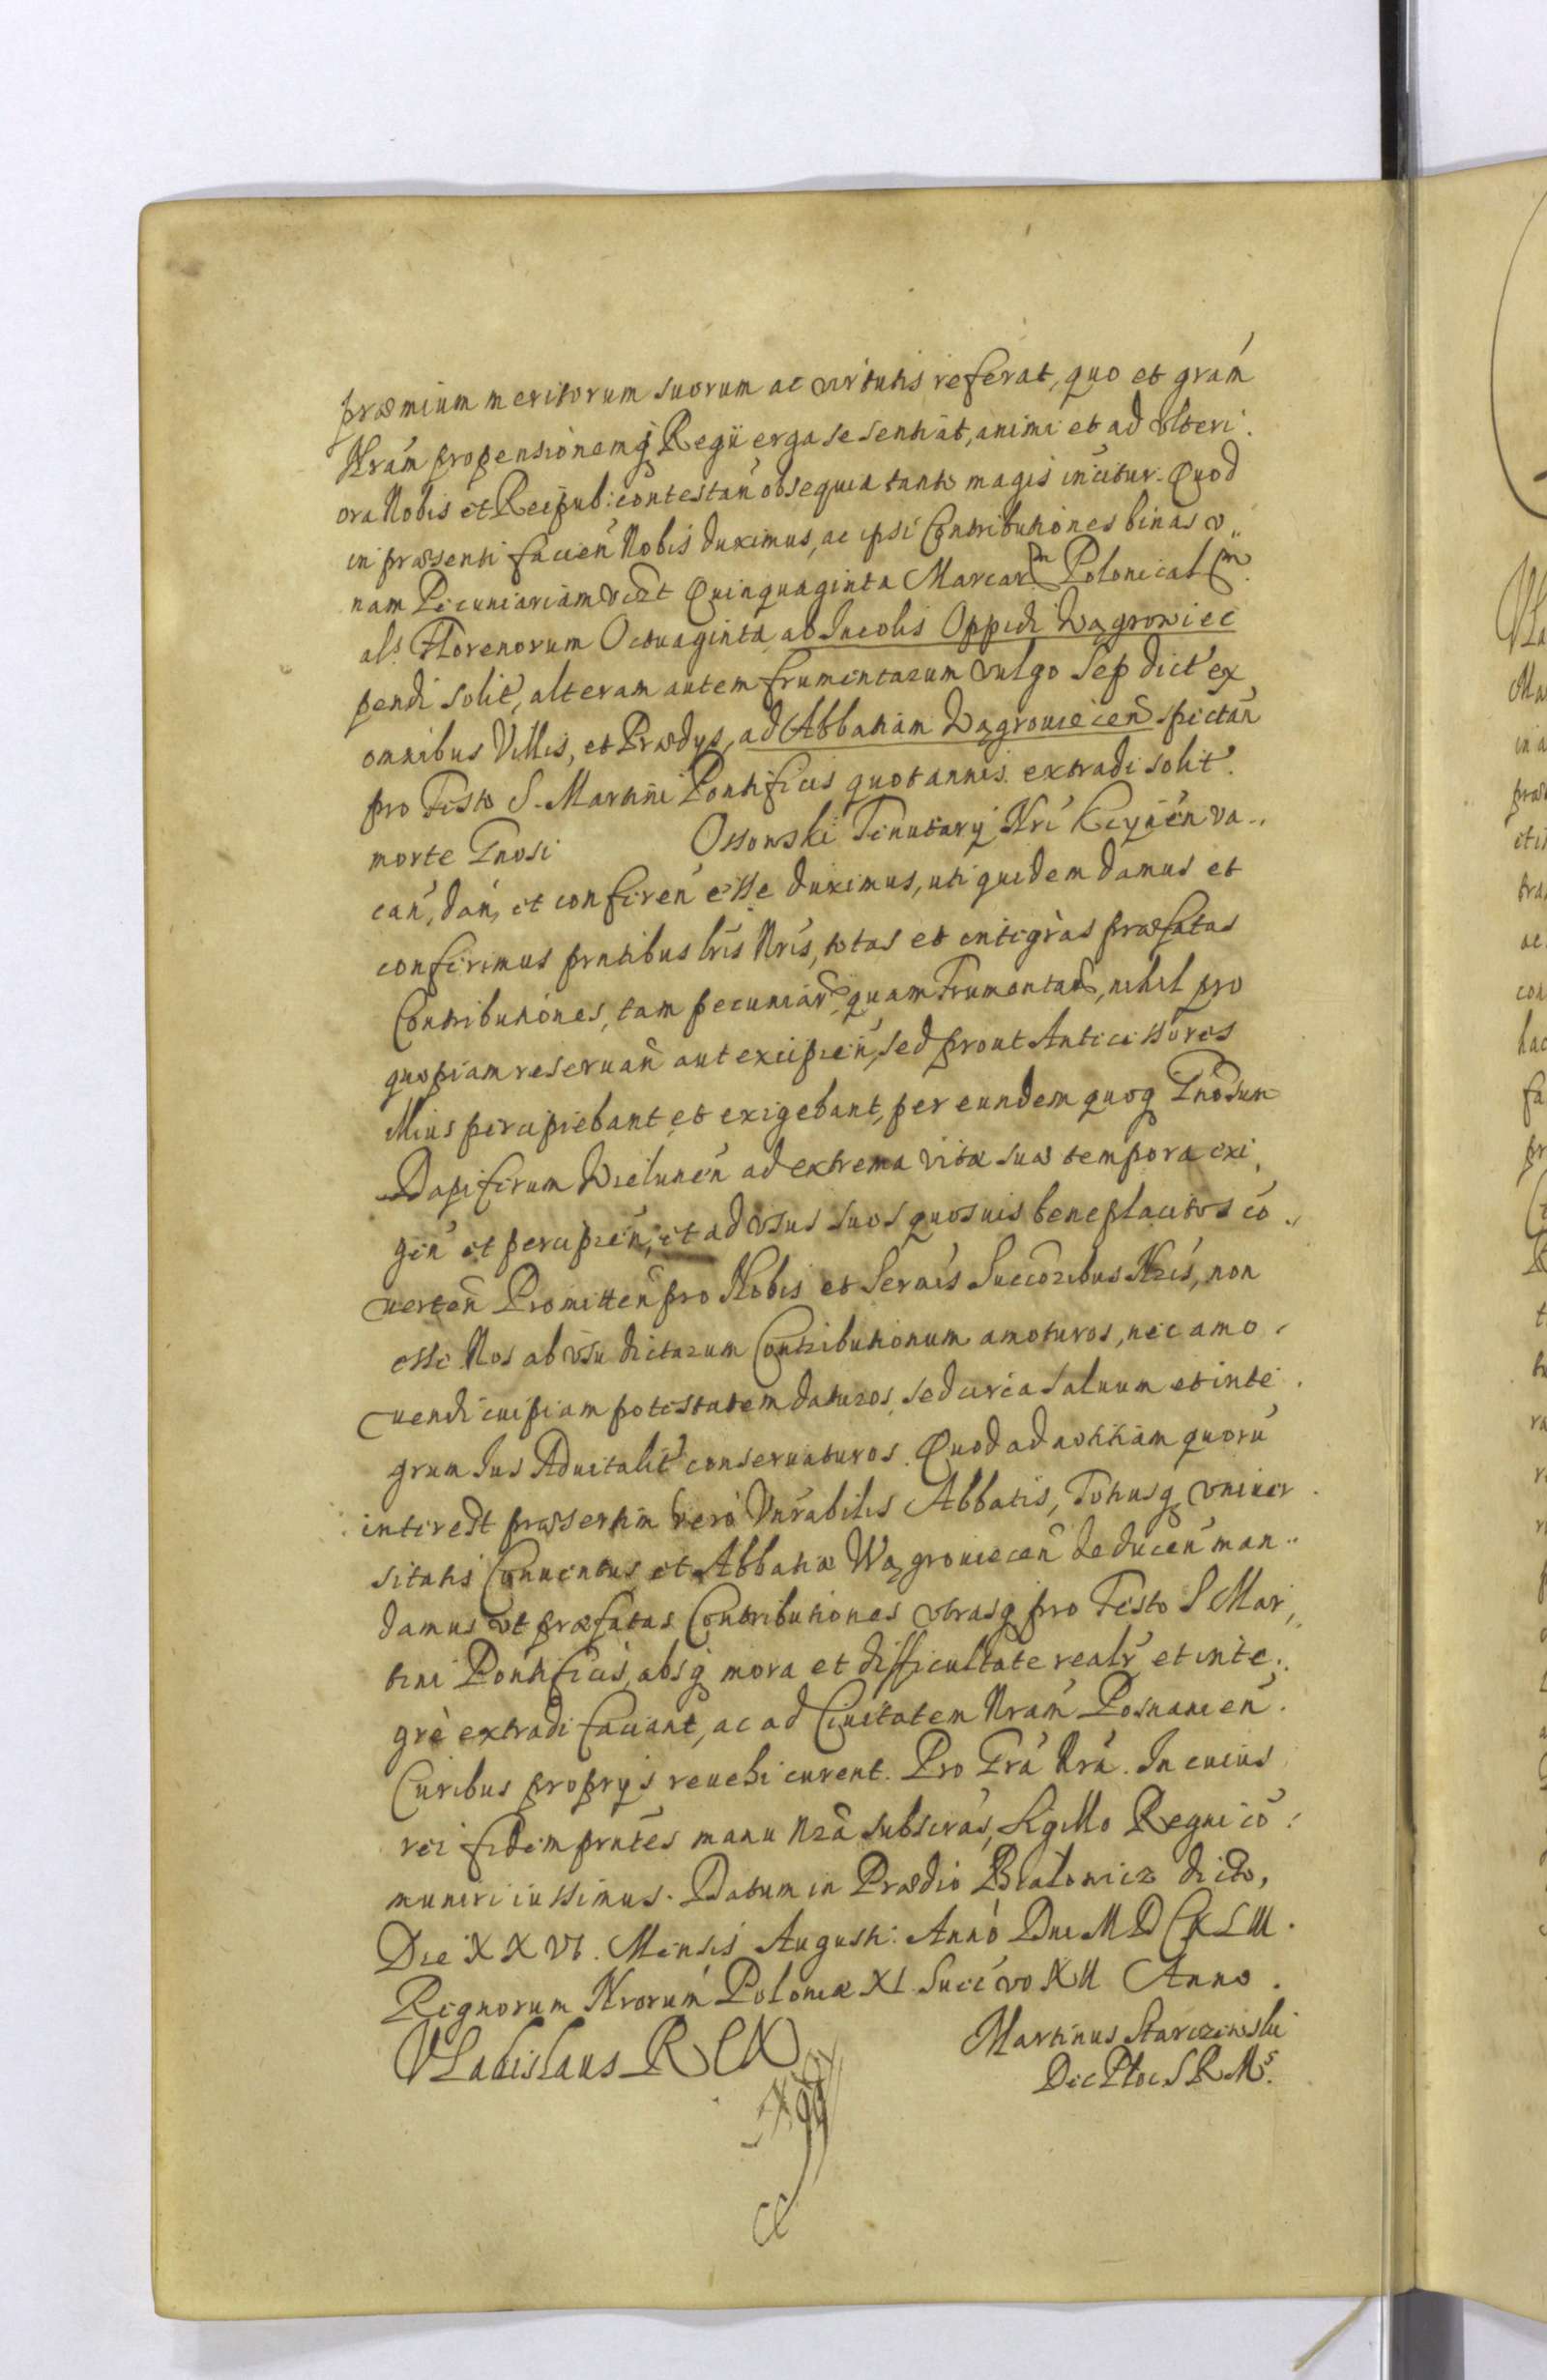 præmium meritorum suorum ac virtutis referat, quo et grám
Nrám propensionemq Regii erga se sentiát, animi et ad vlteri.
ora Nobis et Reipub: contestań obsequia tanto magis incitur. Quod
in præsenti facień Nobis duximus, ac ipsi Contributiones binas v„
nam Pecuniariam vidzt Quinquaginta Marcarm Polonicalm.
als Florenorum Octuaginta, ab Incolis Oppidi Wągrowiec
pendi solit, alteram autem frumentarum vulgo Sep dict ex
omnibus Villis, et Prædys, ad Abbatiam Wągrouiecen spectań
pro Festo S. Martini Pontificis quotannis extradi solit.
morte Gnosi Ossowski Tenutarij Nri Kcynén va..
cań, dań, et conferen esse duximus, uti quidem damus et
conferimus prntibus lris Nris, totas et integras præfatas
Contributiones, tam pecuniar, quam Frumentar, nihil pro
quopiam reseruan aut excipien, sed prout Anticessores
illius percipiebant et exigebant, per eundem quoq Gnosum
Dapiferum Wielunen ad extrema vitæ suæ tempora exi,
gen et percipien, et ad vsus suos quosuis beneplacitos có..
uerten Promitten pro Nobis et Sernis Succoribus Nris, non
esse Nos ab vsu dictarum Contributionum amoturos, nec amo.
uendi cuipiam potestatem daturos, sed circa saluum et inte.
grum Ius Aduitalit conseruaturos. Quod ad notitiam quorú
interest præsertim vero Vnrabilis Abbatis, Totiusq vniuer.
sitatis Conuentus et Abbatiæ Wągrouiecen deducen man..
damus vt præfatas Contributiones vtrasq pro Festo S Mar,,
tini Pontificis, absq mora et difficultate realr et inte..
grè extradi faciant, ac ad Ciuitatem Nram Posnanien.
Curibus proprijs reuehi curent. Pro Gra Nra. In cuius
rei fidem prntes manu Nra subscras, Sigillo Regni có:
muniri iussimus. Datum in Prædio dicto,
Die XXVI. Mensis Augusti: Anno Dni M D C XLIII.
Regnorum Nrorum Poloniæ XI. Suec vo XII Anno.
Vladislaus REX
Martinus Starczewski
Dec Ploc S R Ms.